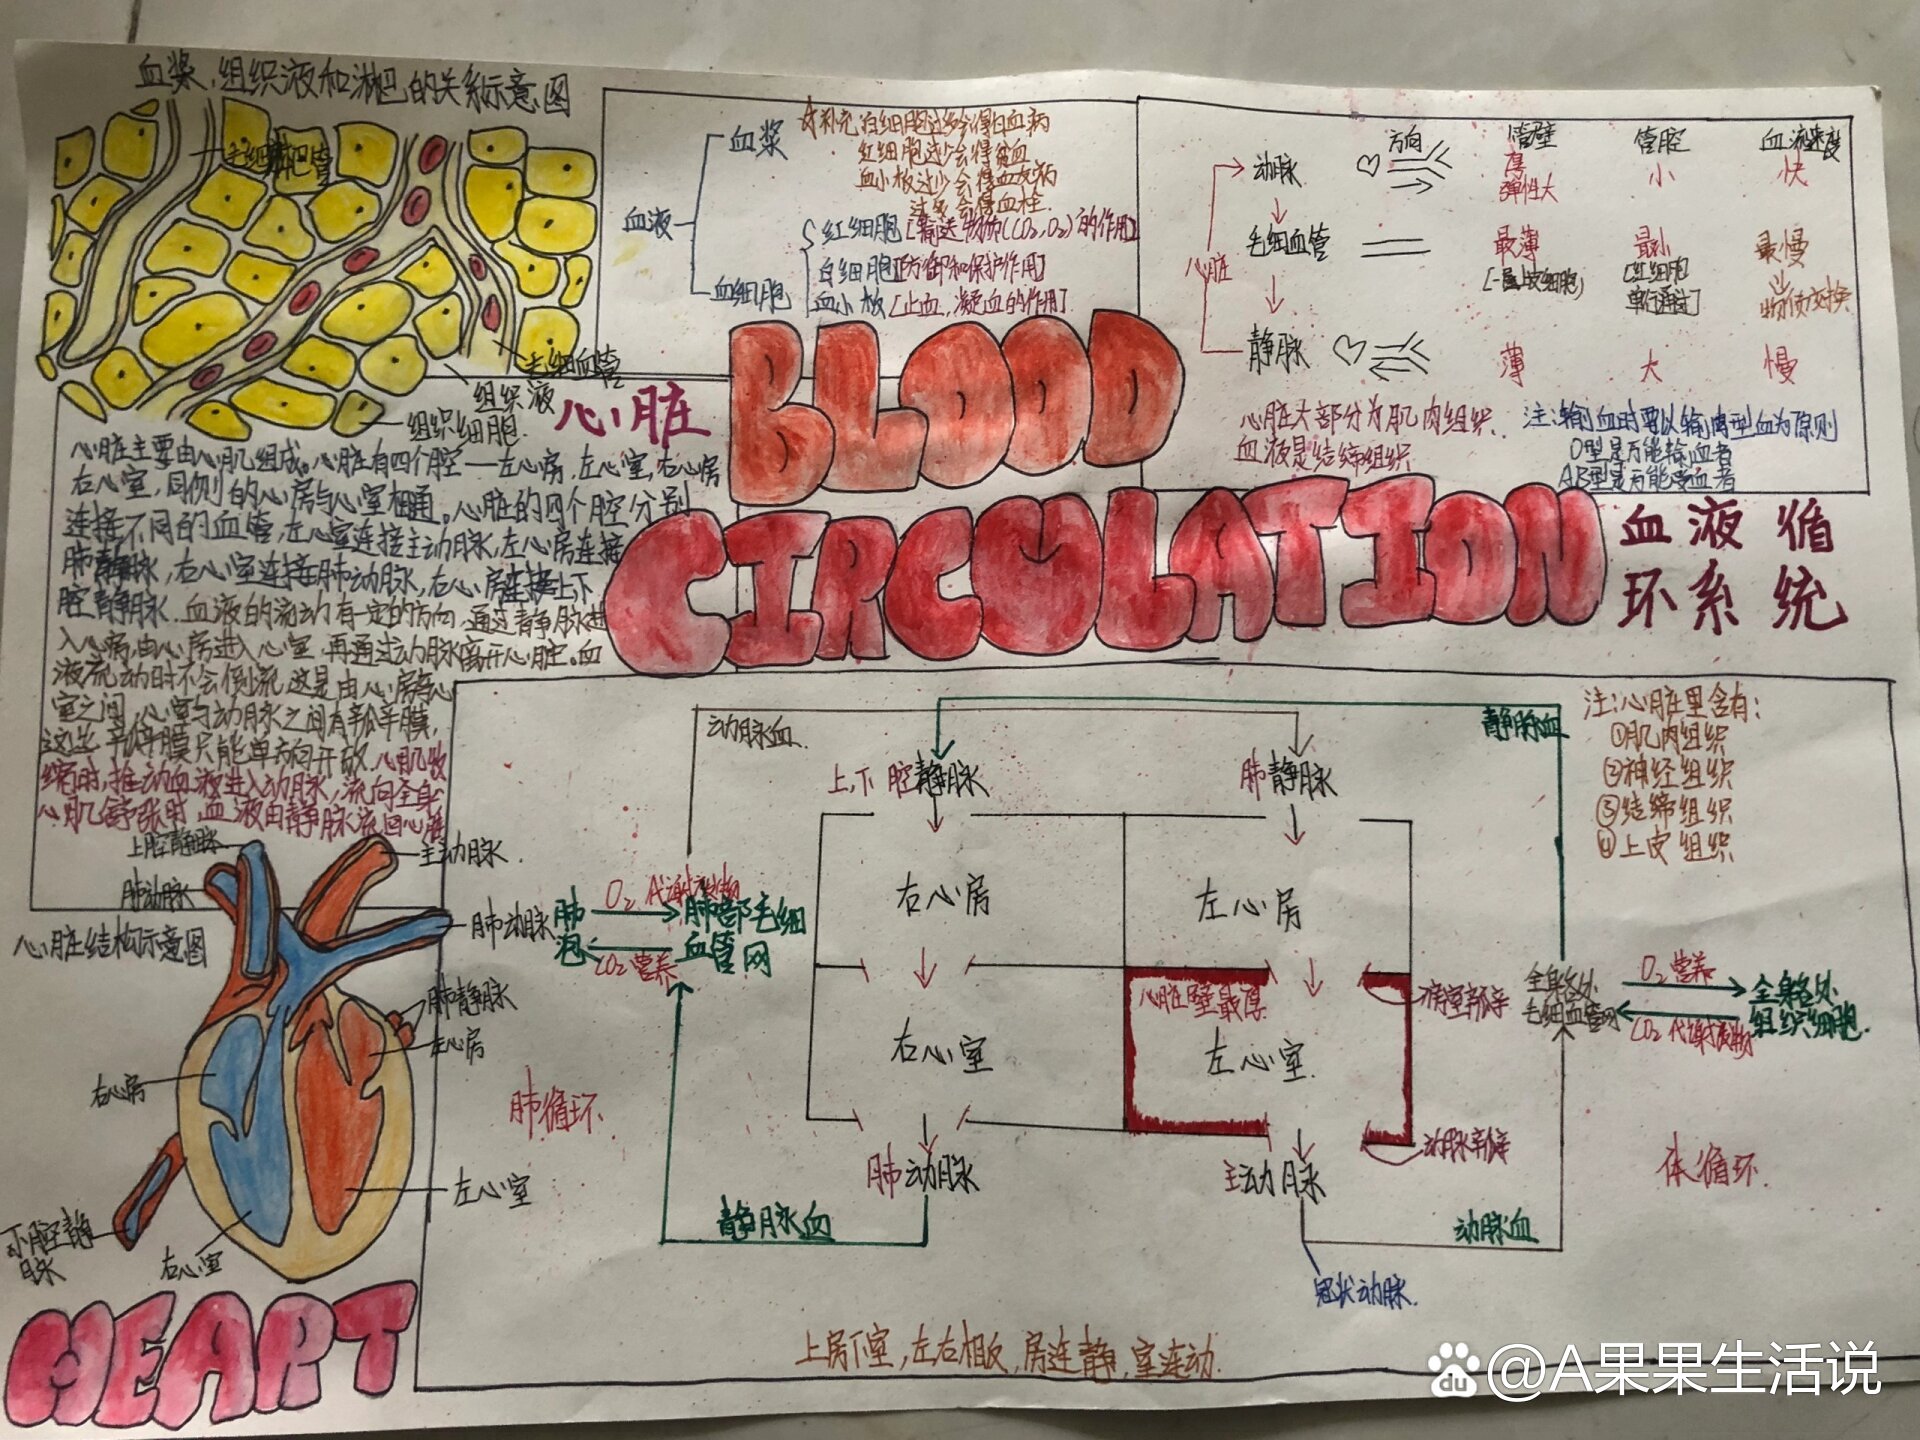 血浆,组织液和淋巴的关系示意图
毛细淋巴管
毛细血管
组织液
组织细胞
血液
血浆
☆补充:白细胞过多会得白血病
红细胞过少会得贫血
血小板过少会得血友病
过多会得血栓
血细胞
红细胞[输送物质(CO₂,O₂)的作用]
白细胞[防御和保护作用]
血小板[止血,凝血的作用]
方向 管壁 管腔 血液速度
心脏
动脉 厚 小 快
弹性大
毛细血管 最薄 最小 最慢
[一层上皮细胞) [红细胞
单行通过] 物质交换
静脉 薄 大 慢
心脏大部分为肌肉组织.
血液是结缔组织
注:输血时要以输同型血为原则
O型是万能输血者
AB型是万能受血者
BLOOD
CIRCULATION
血液循
环系统
心脏
心脏主要由心肌组成。心脏有四个腔—左心房,左心室,右心房
右心室,同侧的心房与心室相通。心脏的四个腔分别
连接不同的血管,左心室连接主动脉,左心房连接
肺静脉,右心室连接肺动脉,右心房连接上、下
腔静脉.血液的流动有一定的方向,通过静脉进
入心房,由心房进入心室,再通过动脉离开心脏。血
液流动时不会倒流,这是由心房与心
室之间,心室与动脉之间有瓣膜,
这些瓣膜只能单向开放.心肌收
缩时,推动血液进入动脉,流向全身
心肌舒张时,血液由静脉流回心脏
心脏结构示意图
上腔静脉
肺动脉
主动脉.
肺动脉
肺静脉
左心房
右心房
左心室
右心室
下腔静
脉
HEART
动脉血
静脉血
上、下腔静脉
肺静脉
右心房
左心房
右心室
左心室
心脏壁最厚
房室瓣
动脉瓣
肺动脉
主动脉
静脉血
动脉血
冠状动脉.
肺
泡
O₂ 代谢废物
CO₂ 营养
肺部毛细
血管网
肺循环
全身各处
毛细血管网
O₂ 营养
CO₂ 代谢废物
全身各处
组织细胞.
体循环.
注:心脏里含有:
①肌肉组织
②神经组织
③结缔组织
④上皮组织
上房下室,左右相反,房连静,室连动.
du @A果果生活说